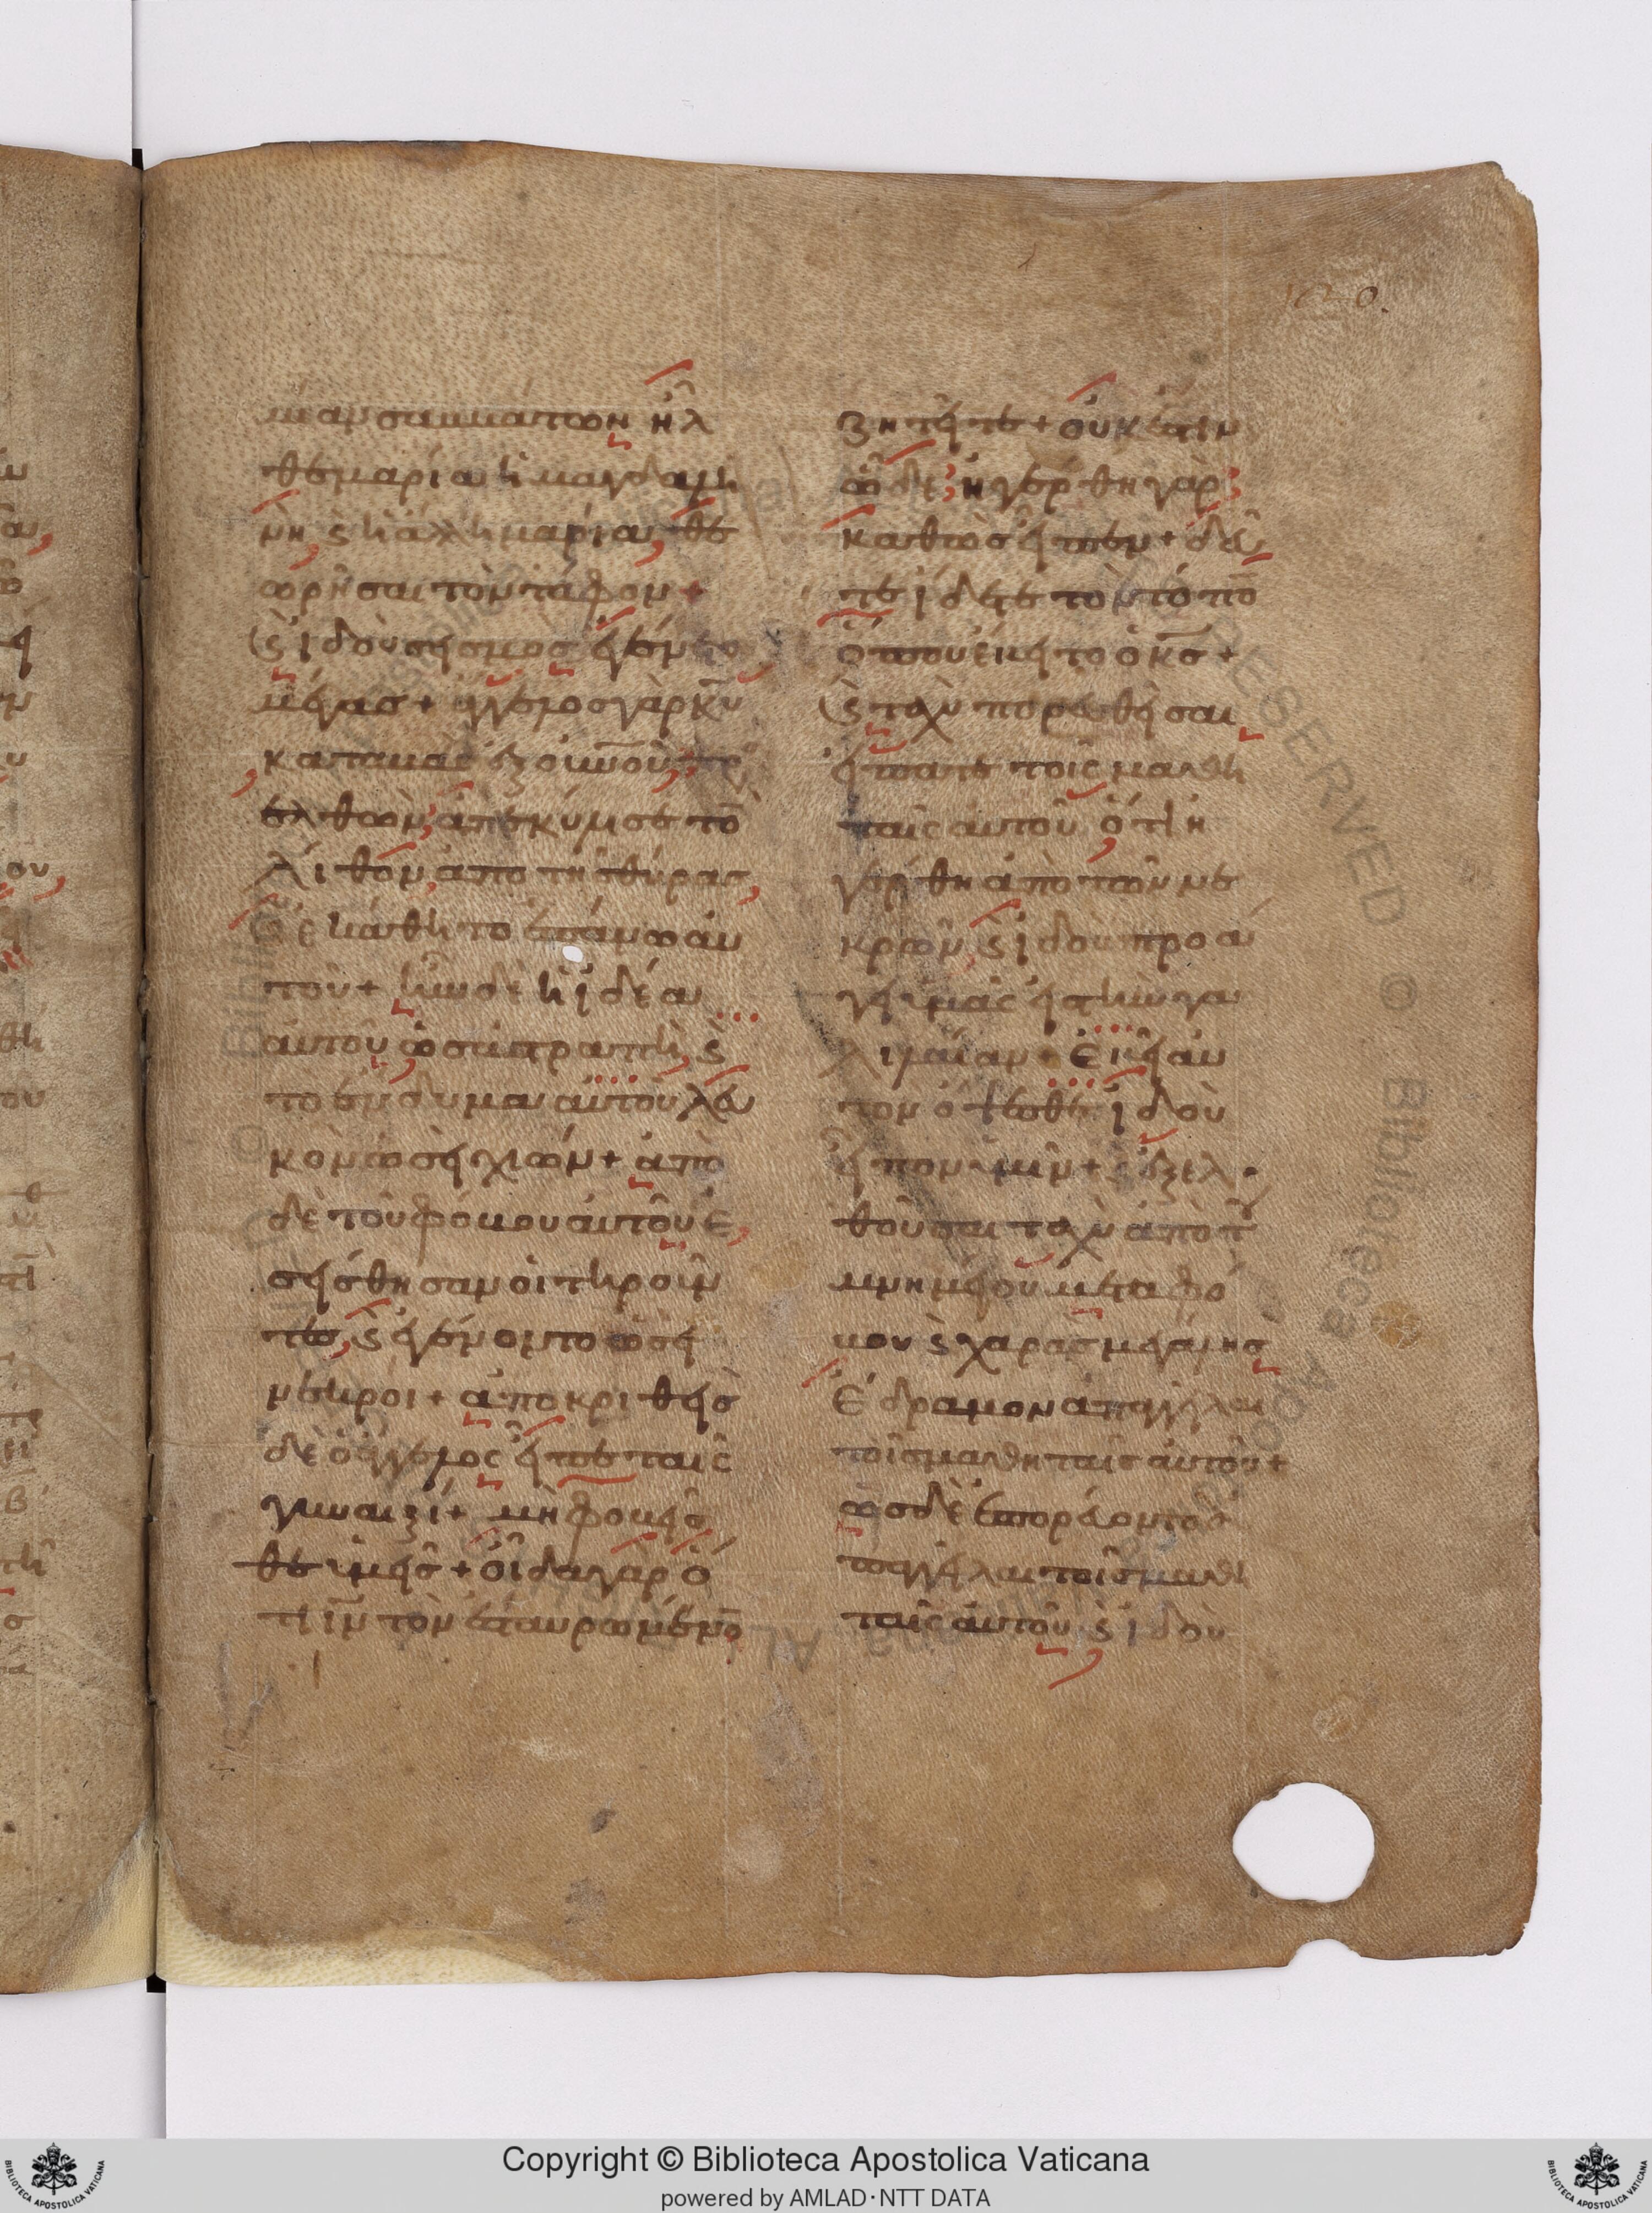 120.
μίαν σαμμάτων ἦλ
θε μαρία ἡ μαγδαλη
νὴ, ϗ ἡ ἄλλη μαρία, θε
ωρῆσαι τὸν τάφον +
ϗ ἰδοὺ σησμος ἐγένετο
μέγας + ἄγγελος γὰρ κυ
καταβὰς ἐξ οὐνοῦ, πρ
ελθὼν, ἀπεκύλισε το
λίθον, ἀπο τῆς θύρας,
ϗ ἐκάθητο ἐπάνω αυ
τοῦ + ἦν δὲ ἡ ἰδέα
ἀυτοῦ ὡς ἀστραπὴ, ϗ
το ἔνδυμα ἀυτοῦ λευ
κὸν ὡσῆ χιών + ἀπὸ
δὲ τοῦ φόβου ἀυτοῦ ἐ,
σήσθησαν οἱ τηροῦν
τες, ϗ ἐγένοντο ὡσή
νεκροι + ἀποκριθῆς
δὲ ὁ ἄγγελος εἶπε ταῖς
γυναιξί + μὴ φοβῆσ
θε ὑμῆς + οἶδα γὰρ ὅ
τι ιν τὸν ἐσταυρωμένο
ζητῆτε + οὐκ ἔστιν
ὧδε, ἠγέρθη γὰρ,
καθὼς εἶπεν + δεῦ
τε ἴδετε τὸν τόπο
ὅπου ἔκητο ὁ κς +
ϗ ταχὺ πορευθῆσαι
εἴπατε τοῖς μαθη
ταῖς ἀυτοῦ, ὅτι ἠ
γέρθη ἀπὸ τῶν νε
κρῶν, ϗ ἰδοὺ προά
γη ὑμᾶς ἠς τὴν γα
λιλαίαν + ἐκῆ αυ
τον ὄψεσθε, ἰδοὺ
εἶπον ὑμῖν + ϗ ἐξελ
θοῦσαι ταχὺ ἀπὸ τοῦ
μνημήου μετα φό
βου ϗ χαρᾶς μεγάλης
ἔδραμον ἀπαγγῆλαι
τοῖς μαθηταῖς ἀυτοῦ +
ὡς δὲ ἐπορέυοντο ἀ
παγγῆλαι τοῖς μαθη
ταῖς ἀυτοῦ, ϗ ἰδοὺ
Copyright © Biblioteca Apostolica Vaticana
powered by AMLAD·NTT DATA